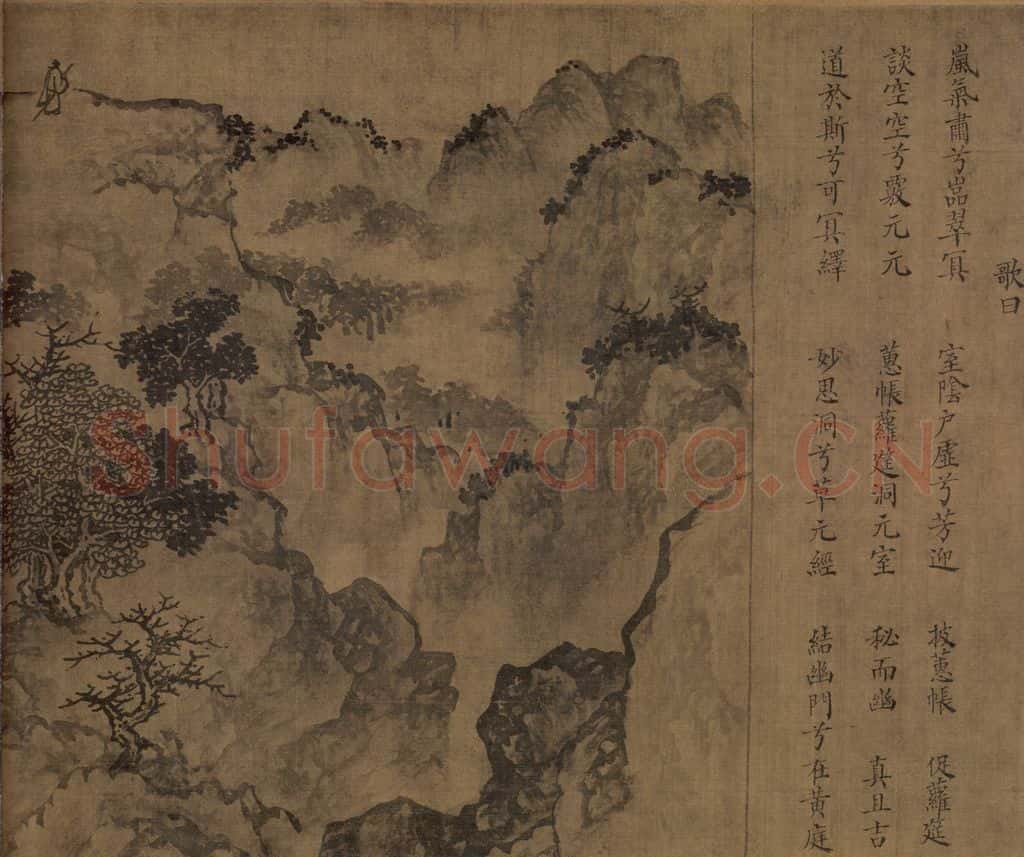 歌曰
嵐氣肅兮嵒翠冥 室陰户虛兮芳迎 披蕙帳 促蘿莚
談空空兮覈元元 蕙帳蘿莚洞元室 秘而幽 真且吉
道於斯兮可冥繹 妙思洞兮草元經 結幽門兮在黃庭
Shufawang.CN